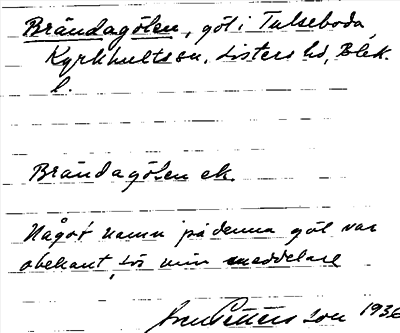 Brändagölen, göl i Tulseboda,
Kyrkhults sn, Listers hd, Blek.
l.
Brändagölen ek.
Något namn på denna göl var
obekant för min meddelare
Sven Petersson 1936